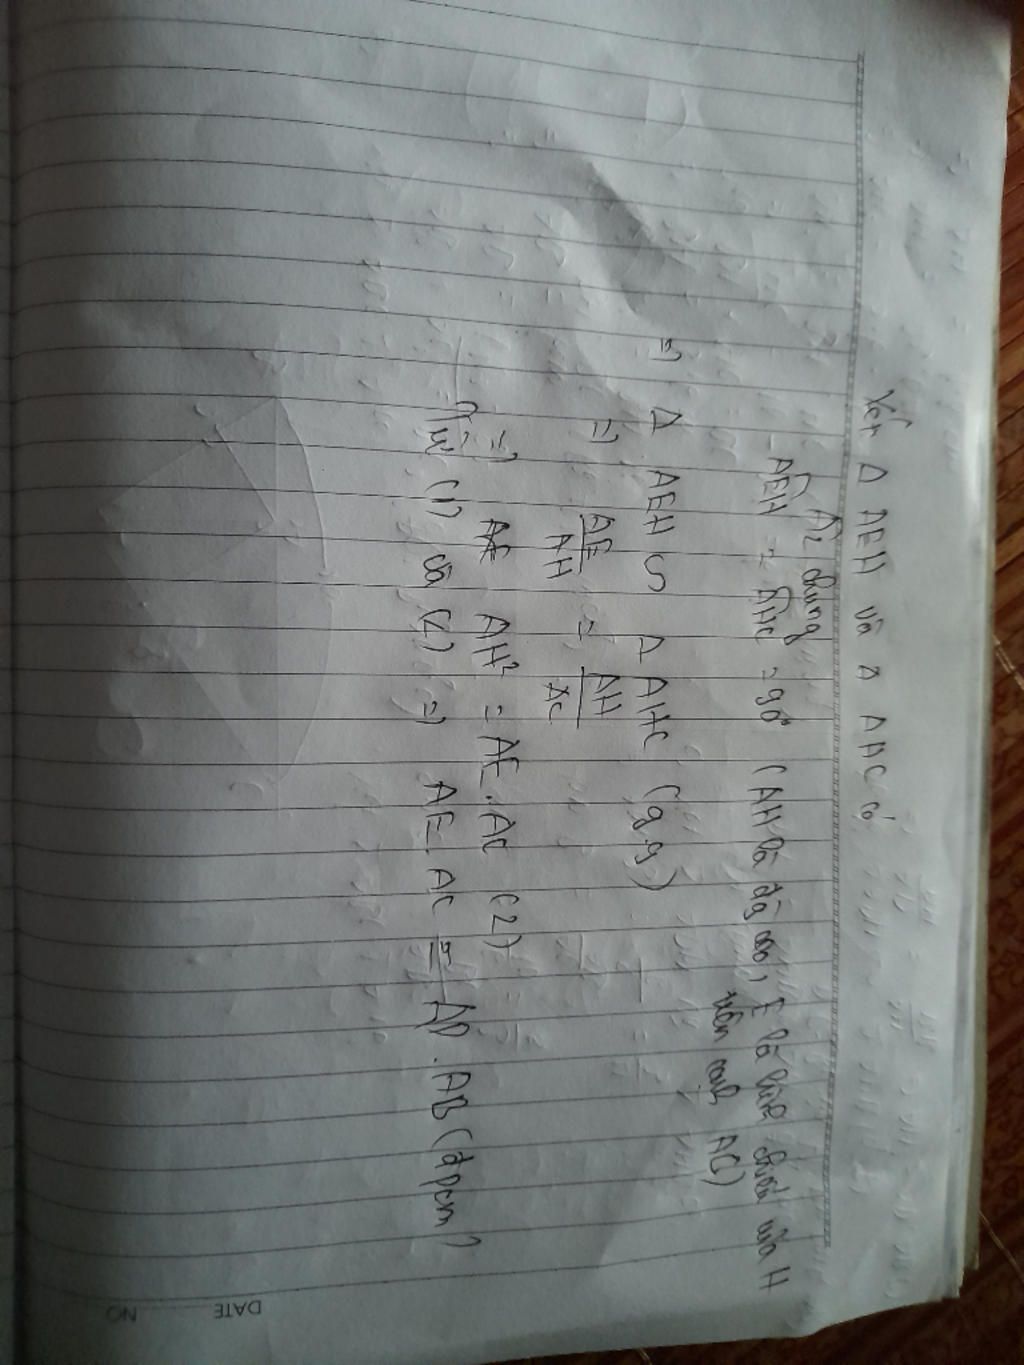 Xét Δ AEH và Δ AHC có
Â2 chung
AEH = AHC = 90° (AH là đg cao, E là hình chiếu của H
trên cạnh AC)
=> Δ AEH S Δ AHC (g.g)
=> AE/AH = AH/AC
=> AH² = AE.AC (2)
Từ (1) và (2) => AE.AC = AD.AB (đpcm)
DATE NO